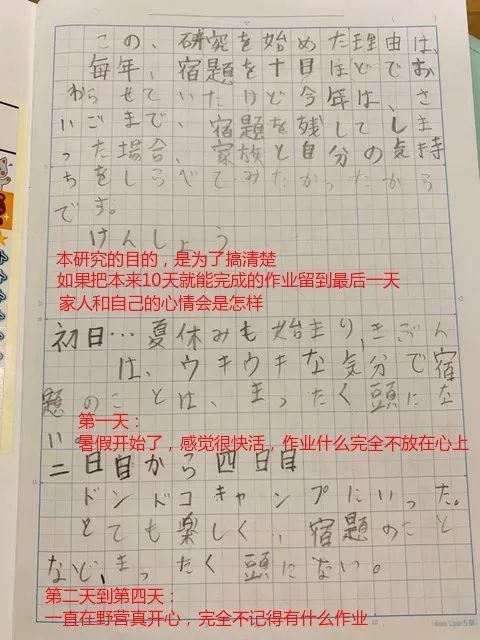 この、研究を始めた理由は、
毎年、宿題を十日ほどで、お
わらせていたけど今年は、さ
いごまで、宿題を残してしま
った場合、家族と自分の気持
ちをしらべてみたかったから
です。
けんしょう
本研究的目的，是为了搞清楚
如果把本来10天就能完成的作业留到最后一天
家人和自己的心情会是怎样
初日…夏休みも始まり,きごん
は、ウキウキな気分で宿
題のことは、まったく頭にな
い。
第一天：
暑假开始了，感觉很快活，作业什么完全不放在心上
二日目から四日目
ドンドコキャンプにいった。
とても楽しく、宿題のこと
など、まったく頭にない。
第二天到第四天：
一直在野营真开心，完全不记得有什么作业